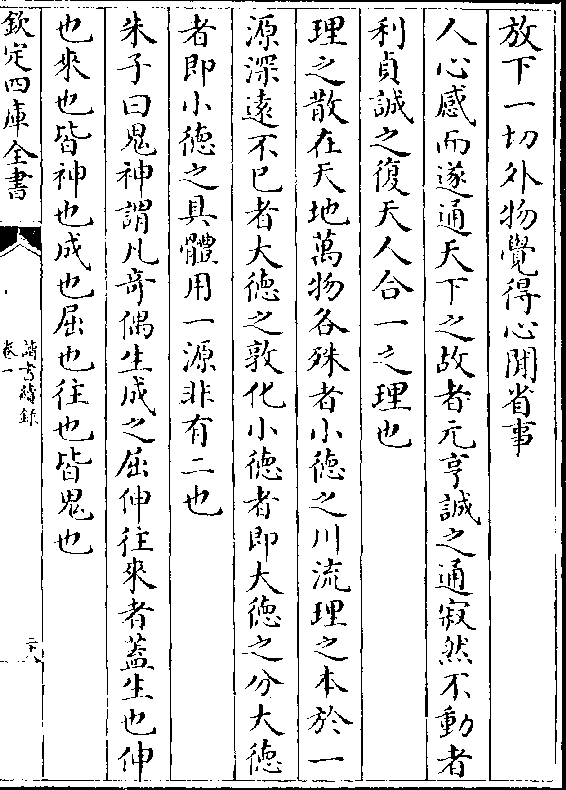 放下一切外物覺得心閒省事
人心感而遂通天下之故者元亨誠之通寂然不動者
利貞誠之復天人合一之理也
理之散在天地萬物各殊者小徳之川流理之本於一
源深遠不已者大徳之敦化小徳者即大徳之分大徳
者即小徳之具體用一源非有二也
朱子曰鬼神謂凡竒偶生成之屈伸往來者蓋生也伸
也來也皆神也成也屈也往也皆鬼也
欽定四庫全書
讀書續錄
卷一
二十八